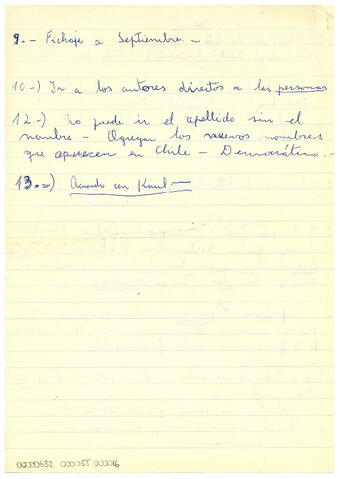 9.- Fichaje a Septiembre.-
10.-) Ir a los autores directos a las personas
12-) no puede ir el apellido sin el
nombre - Agregar los nuevos nombres
que aparecen en Chile - Democrático.-
13.=) Acuerdo con Karul
00000632 000055 000016